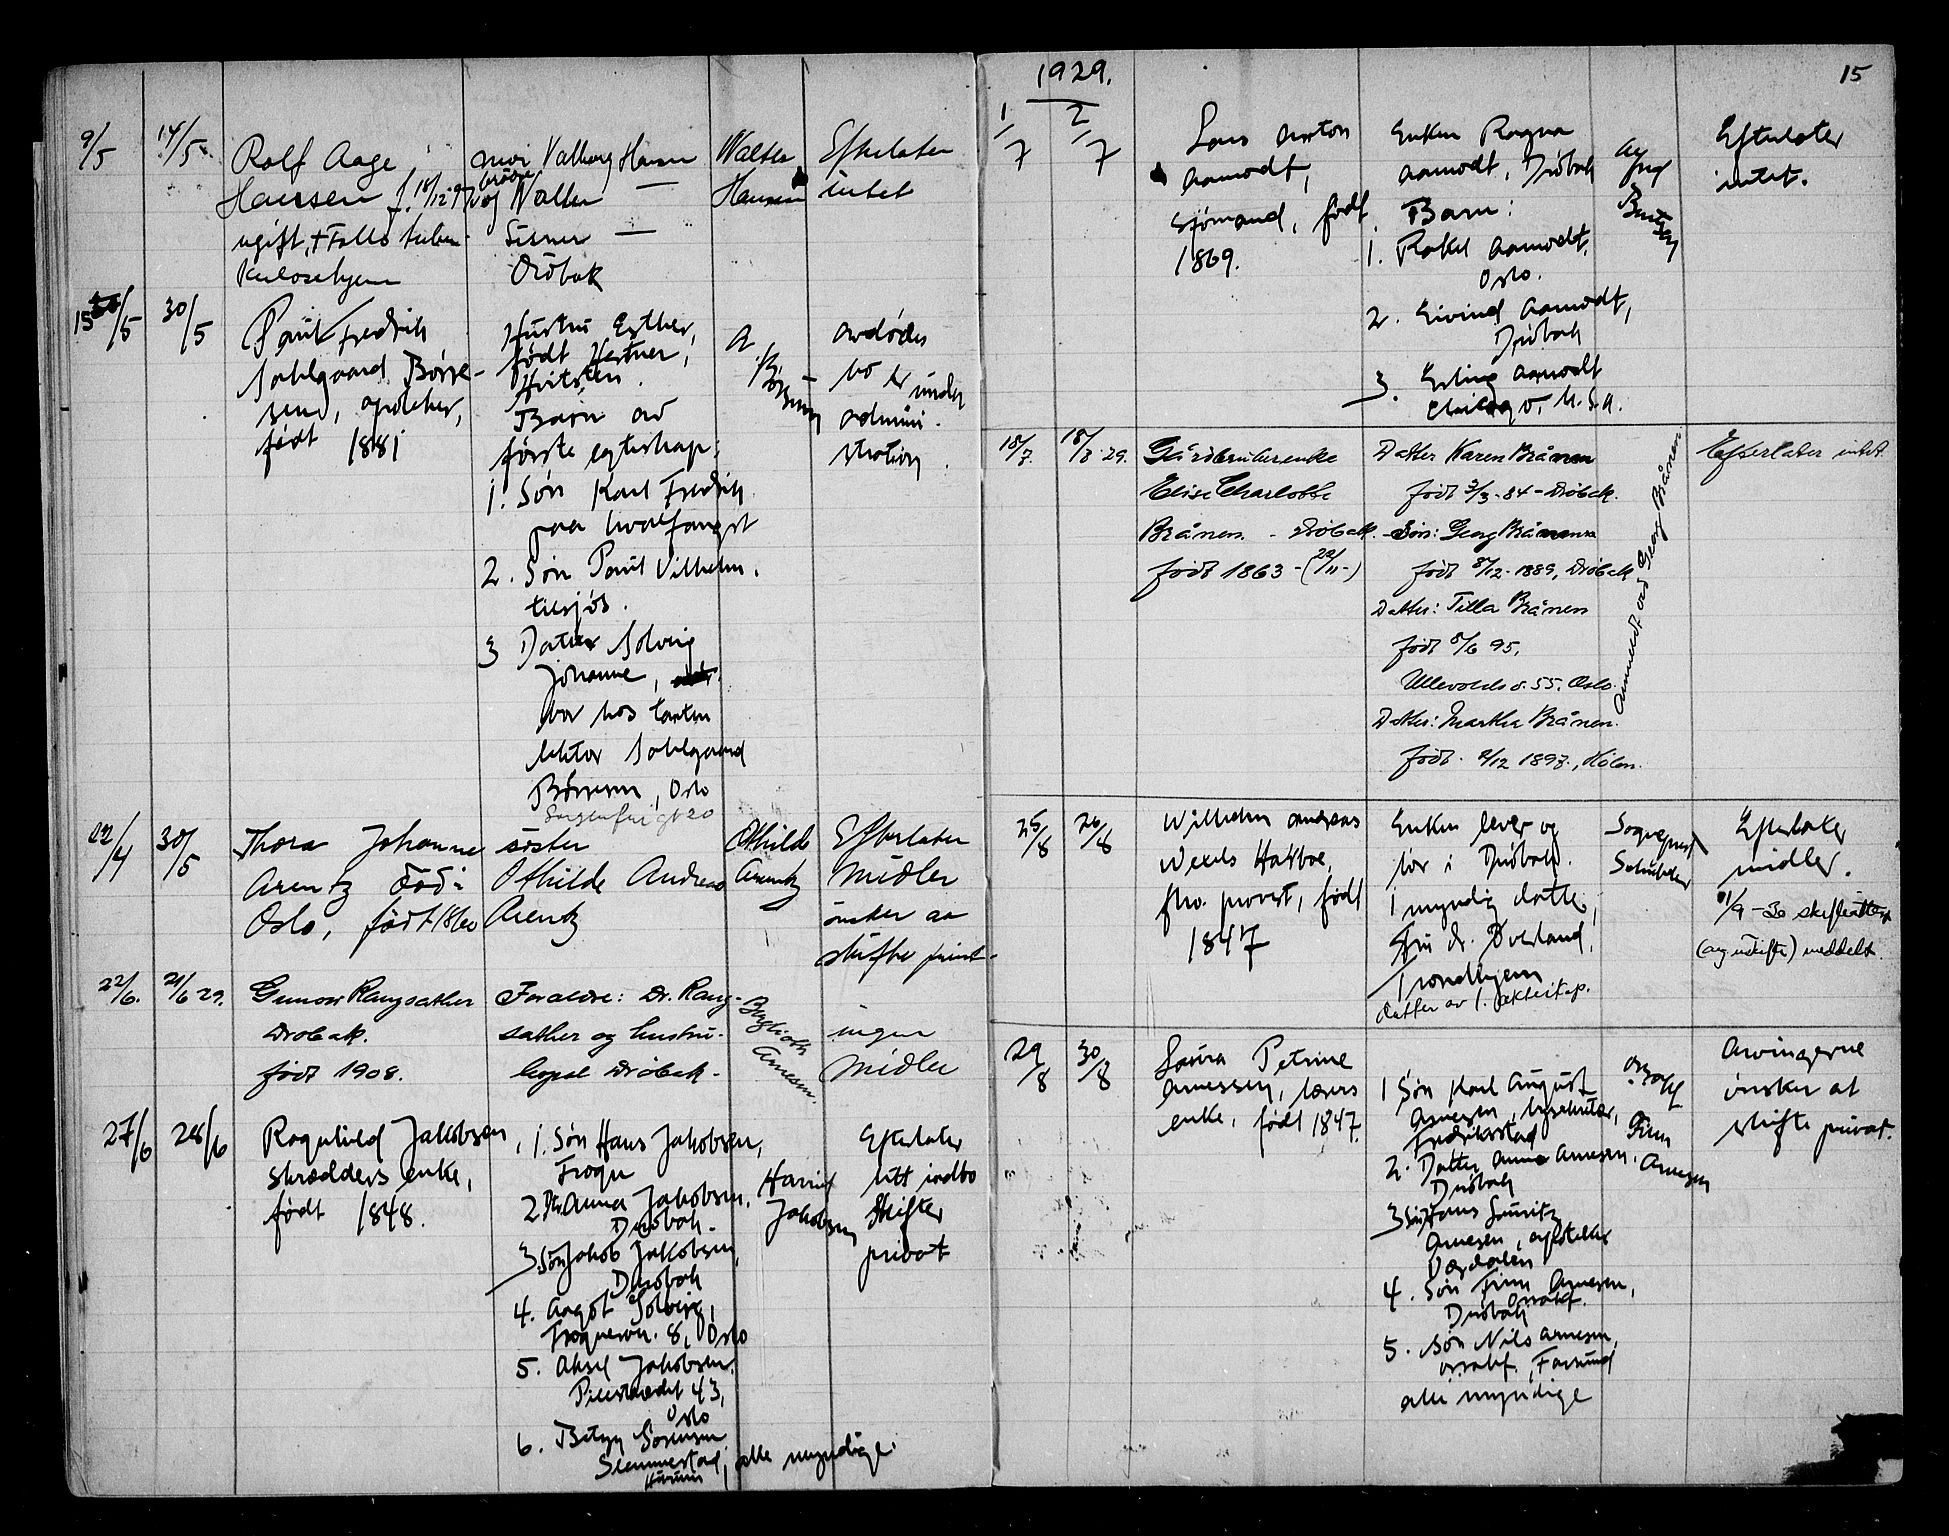 9/5 14/5 Rolf Aage
Hansen f. 18/12 97
ugift, + Follo tuber-
kulosehjem
mor Valborg Hansen
brødre
og Walter —
Sverre —
Drøbak
Walter
Hansen
Efterlater
intet
15/5 30/5 Paul Fredrik
Sahlgaard Børre-
sen, apoteker,
født 1881
Hustru Esther,
født Hertner,
Hvitsten.
Barn av
første egteskap:
1. Søn Karl Fredrik
paa hvalfangst
2. Søn Paul Vilhelm,
tilsjøs.
3 Datter Solveig
Johanne,
bor hos tanten
lektor Sahlgaard
Børresen, Oslo
Sorgenfrigt 20
A
Børresen
Avdødes
bo er under
admini-
stration.
22/4 30/5 Thora Johanne
Arentz død i
Oslo, født 1860
søster
Othilde Andrea
Arentz
Othilde
Arentz
Efterlater
Midler
ønsker at
skifte privat.
22/6. 21/6 29. Gunvor Rangsæther
Drøbak.
født 1908.
Foraeldre: Dr. Rang-
sæther og hustru.
bopæl Drøbak.
Berglioth
Arnesen.
ingen
Midler
27/6 28/6 Ragnhild Jakobsen,
skrædders enke,
født 1848.
1. Søn Hans Jakobsen,
Frogn
2. Dtr. Anna Jakobsen,
Drøbak.
3. Søn Jakob Jakobsen,
Drøbak
4. Aagot Solveig,
Frognerv. 8, Oslo
5. Aksel Jakobsen,
Pilestrædet 43,
Oslo
6. Betzy Sørensen
Slemmestad,
Hurum
alle myndige.
Harriet
Jakobsen
Efterlater
litt indbo
Skifter
privat
1929. 15
1/7 2/7 Lars Anton
Aamodt,
sjømand, født
1869.
Enken Ragna
Aamodt, Drøbak
Barn:
1. Rakel Aamodt,
Oslo.
2. Eivind Aamodt,
Drøbak
3. Erling Aamodt
Chicago, U.S.A.
Efterlater
intet.
18/7. 18/7 29. Gårdbrukerenke
Elise Charlotte
Brånen - Drøbak.
født 1863 - (22/11-)
Datter Karen Brånen
født 3/3-84 - Drøbak.
Søn: Georg Brånen
født 8/12-1889, Drøbak
Datter: Tilla Brånen
født 5/6 95,
Ullevoldsv. 55. Oslo.
Datter: Martha Brånen.
født 2/12 1897, Hölen.
Anmeldt av Georg Brånen
Efterlater intet
25/8 26/8 Wilhelm Andreas
Wexels Hatboe,
fhv. provst, født
1847
Enken lever og
bor i Drøbak.
1 myndig datter,
Fru dr. Øverland,
Trondhjem
datter av 1. ekteskap.
Sogneprest
Schübeler
Efterlater
midler.
11/9 - 30 skifteattest
(og uskifte) meddelt.
29/8 30/8 Laura Petrine
Arnessen, losens
enke, født 1847.
1 Søn Karl August
Arnesen, bysekretær,
Fredriksstad
2. Datter Anna Arnesen,
Drøbak
3 Søn Hans Lauritz
Arnesen, apoteker
Værdalen
4. Søn Finn Arnesen,
Drøbak
5. Søn Nils Arnesen,
Farsund
alle myndige
Finn
Arnesen
Arvingerne
ønsker at
skifte privat.